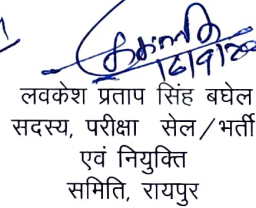 16/9/20
लवकेश प्रताप सिंह बघेल
सदस्य, परीक्षा सेल/भर्ती
एवं नियुक्ति
समिति, रायपुर